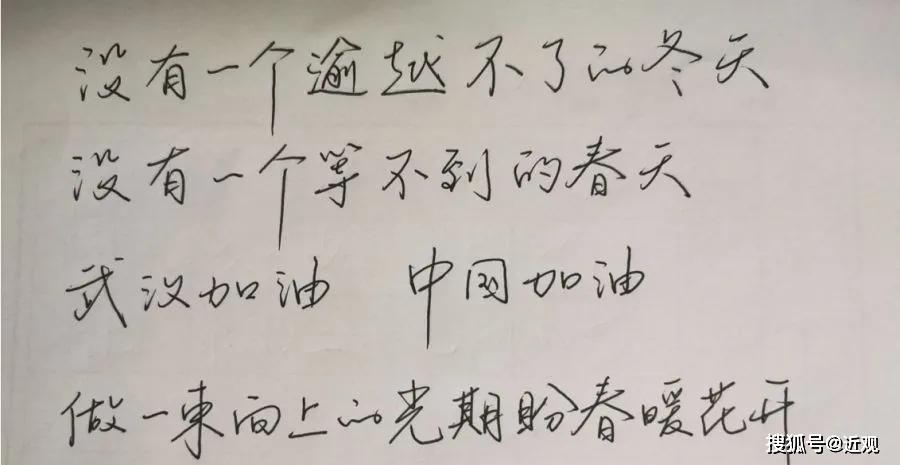 没有一个逾越不了的冬天
没有一个等不到的春天
武汉加油 中国加油
做一束向上的光期盼春暖花开
搜狐号@近观